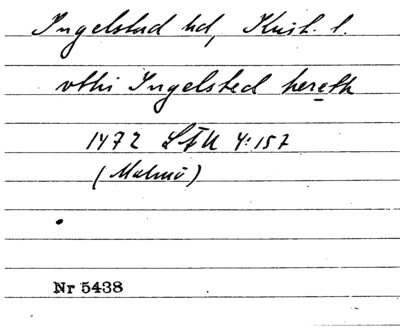 Ingelstad hd, Krist. l.
vthi Ingelsted hereth
1472 LÅU 4:157
(Malmö)
Nr 5438